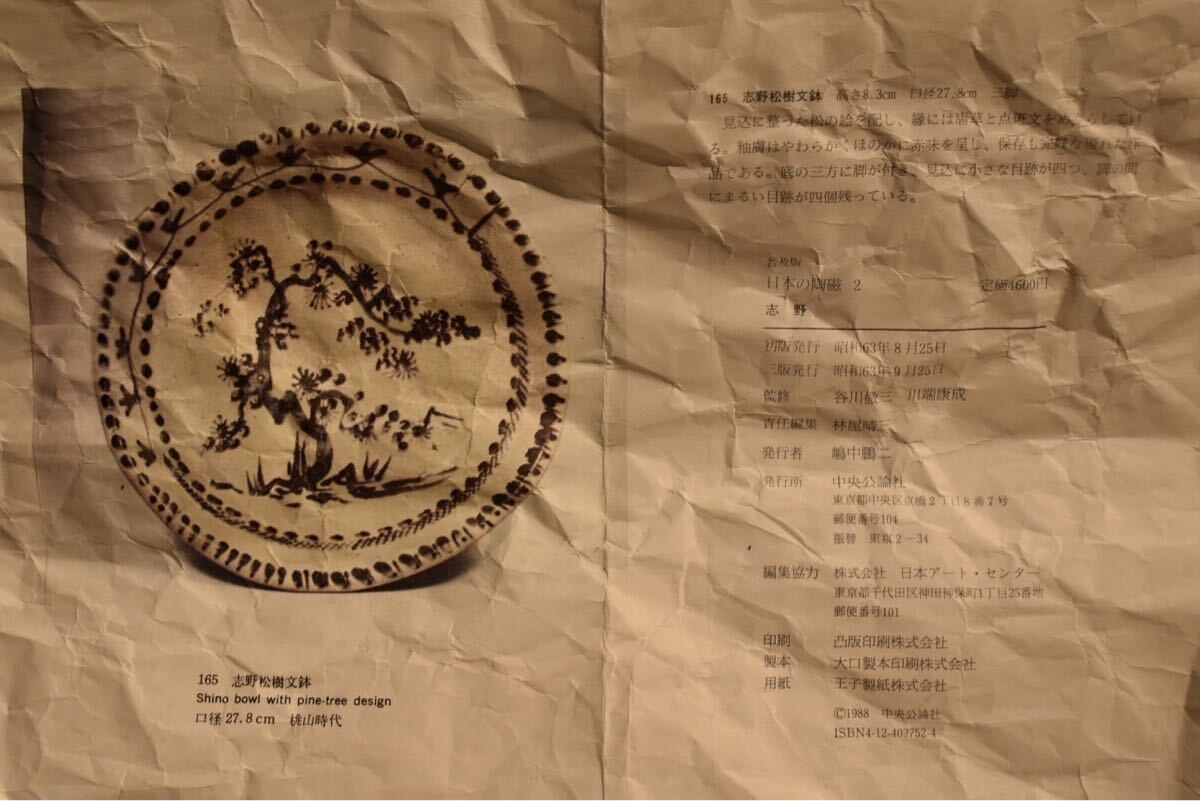 165 志野松樹文鉢
Shino bowl with pine-tree design
口径27.8cm 桃山時代
165 志野松樹文鉢 高さ8.3cm 口径27.8cm 三脚
見込に整つた松の絵を配し、縁には唐草と点斑文をめぐらしてい
る。釉膚はやわらかくほのかに赤味を呈し、保存も完好な優れた作
品である。底の三方に脚が付き、見込に小さな目跡が四つ、脚の間
にまるい目跡が四個残っている。
普及版
日本の陶磁 2 定価4600円
志野
初版発行 昭和63年8月25日
三版発行 昭和63年9月25日
監修 谷川徹三 川端康成
責任編集 林屋晴三
発行者 嶋中鵬二
発行所 中央公論社
東京都中央区京橋2丁目8番7号
郵便番号104
振替 東京2-34
編集協力 株式会社 日本アート・センター
東京都千代田区神田神保町1丁目25番地
郵便番号101
印刷 凸版印刷株式会社
製本 大口製本印刷株式会社
用紙 王子製紙株式会社
©1988 中央公論社
ISBN4-12-402752-4